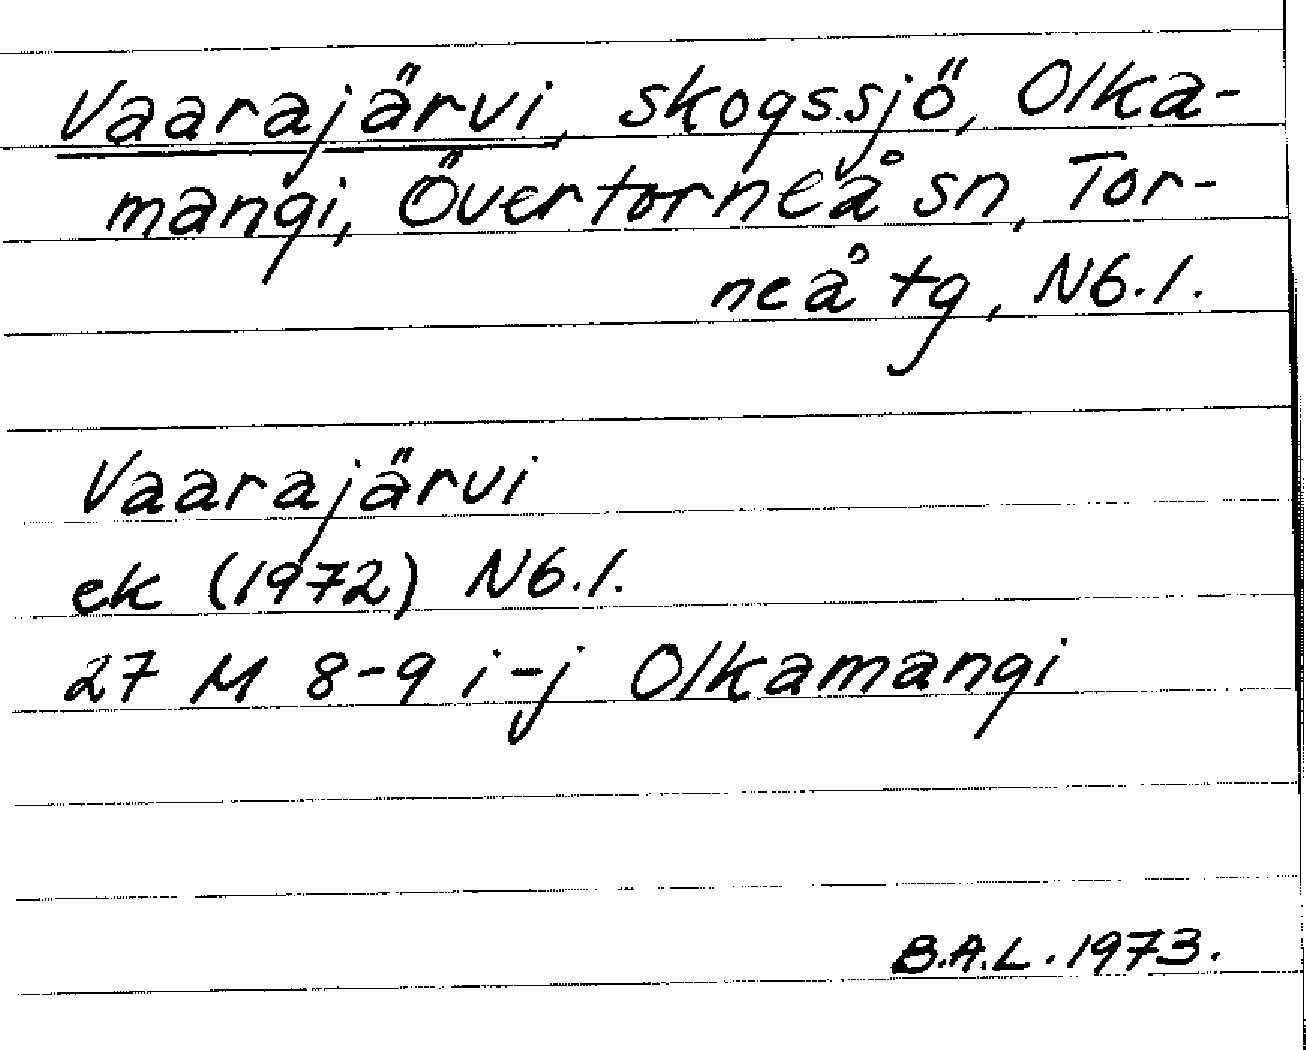 Vaarajärvi, skogssjö, Olka-
mangi, Övertorneå sn, Tor-
neå tg, N6.1.
Vaarajärvi
ek (1972) N6.1.
27 M 8-9 i-j Olkamangi
B.A.L. 1973.